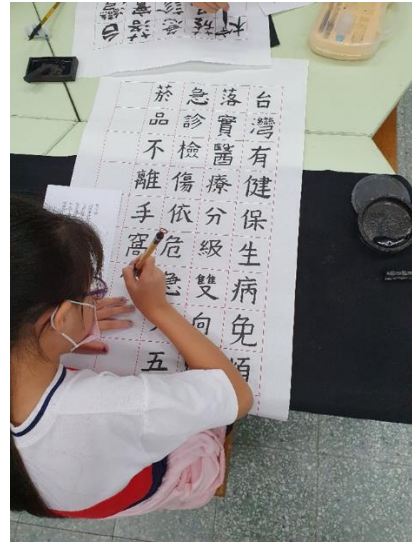 台灣有健保生病免煩
落實醫療分級雙向
急診檢傷依危急
菸品不離手窩
五